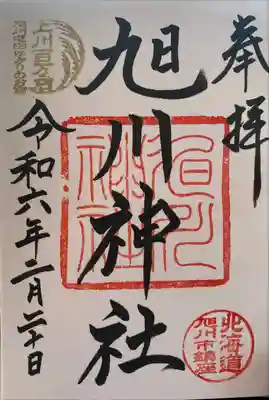 奉拝
旭川神社
令和六年二月二十日
上川百万石
旭川神社
北海道
旭川市鎮座